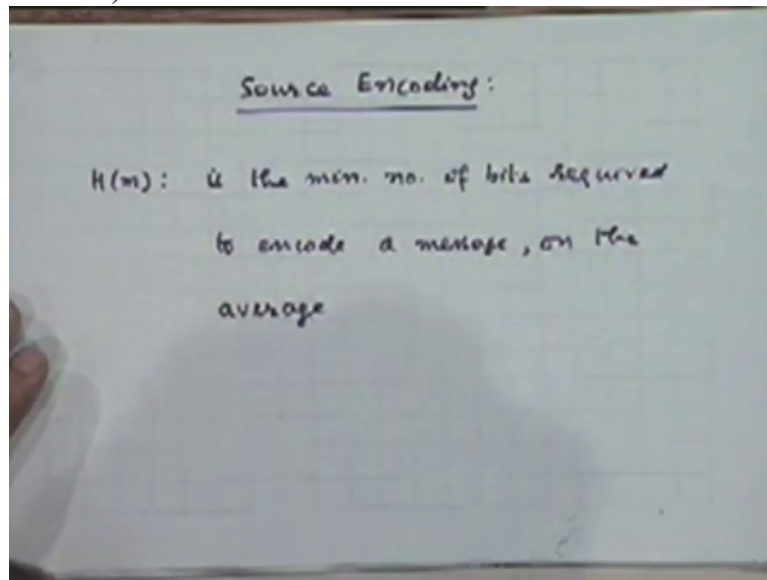 Source Encoding:
H(m): is the min. no. of bits required
to encode a message, on the
average